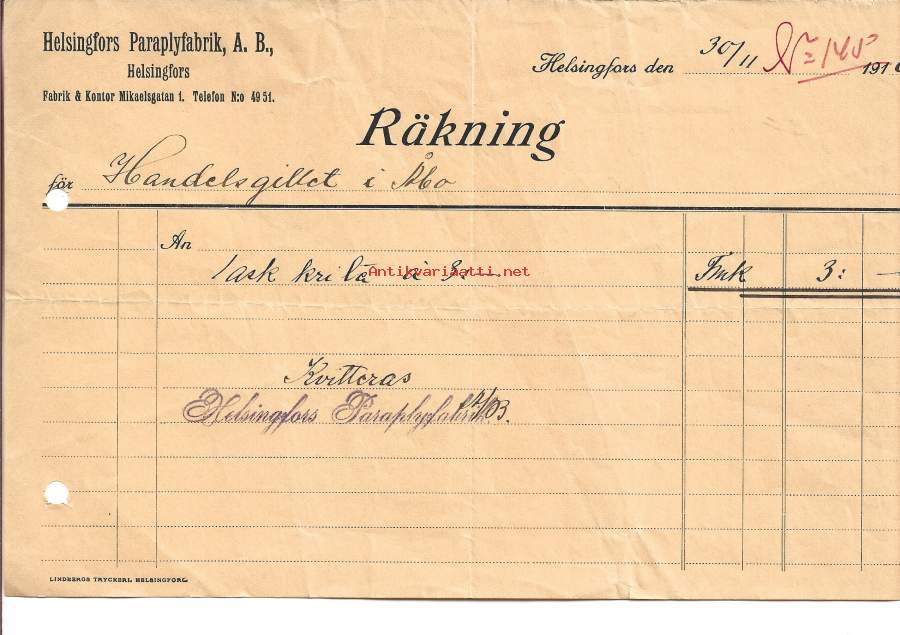 Helsingfors Paraplyfabrik, A. B.,
Helsingfors
Fabrik & Kontor Mikaelsgatan 1. Telefon N:o 49 51.
Helsingfors den 30/11 191
Räkning
för Handelsgillet i Åbo
An
1 ask krita à 3: Fmk 3: —
Antikvariaatti.net
Kvitteras
Helsingfors Paraplyfabrik A/B.
LINDBERGS TRYCKERI, HELSINGFORS